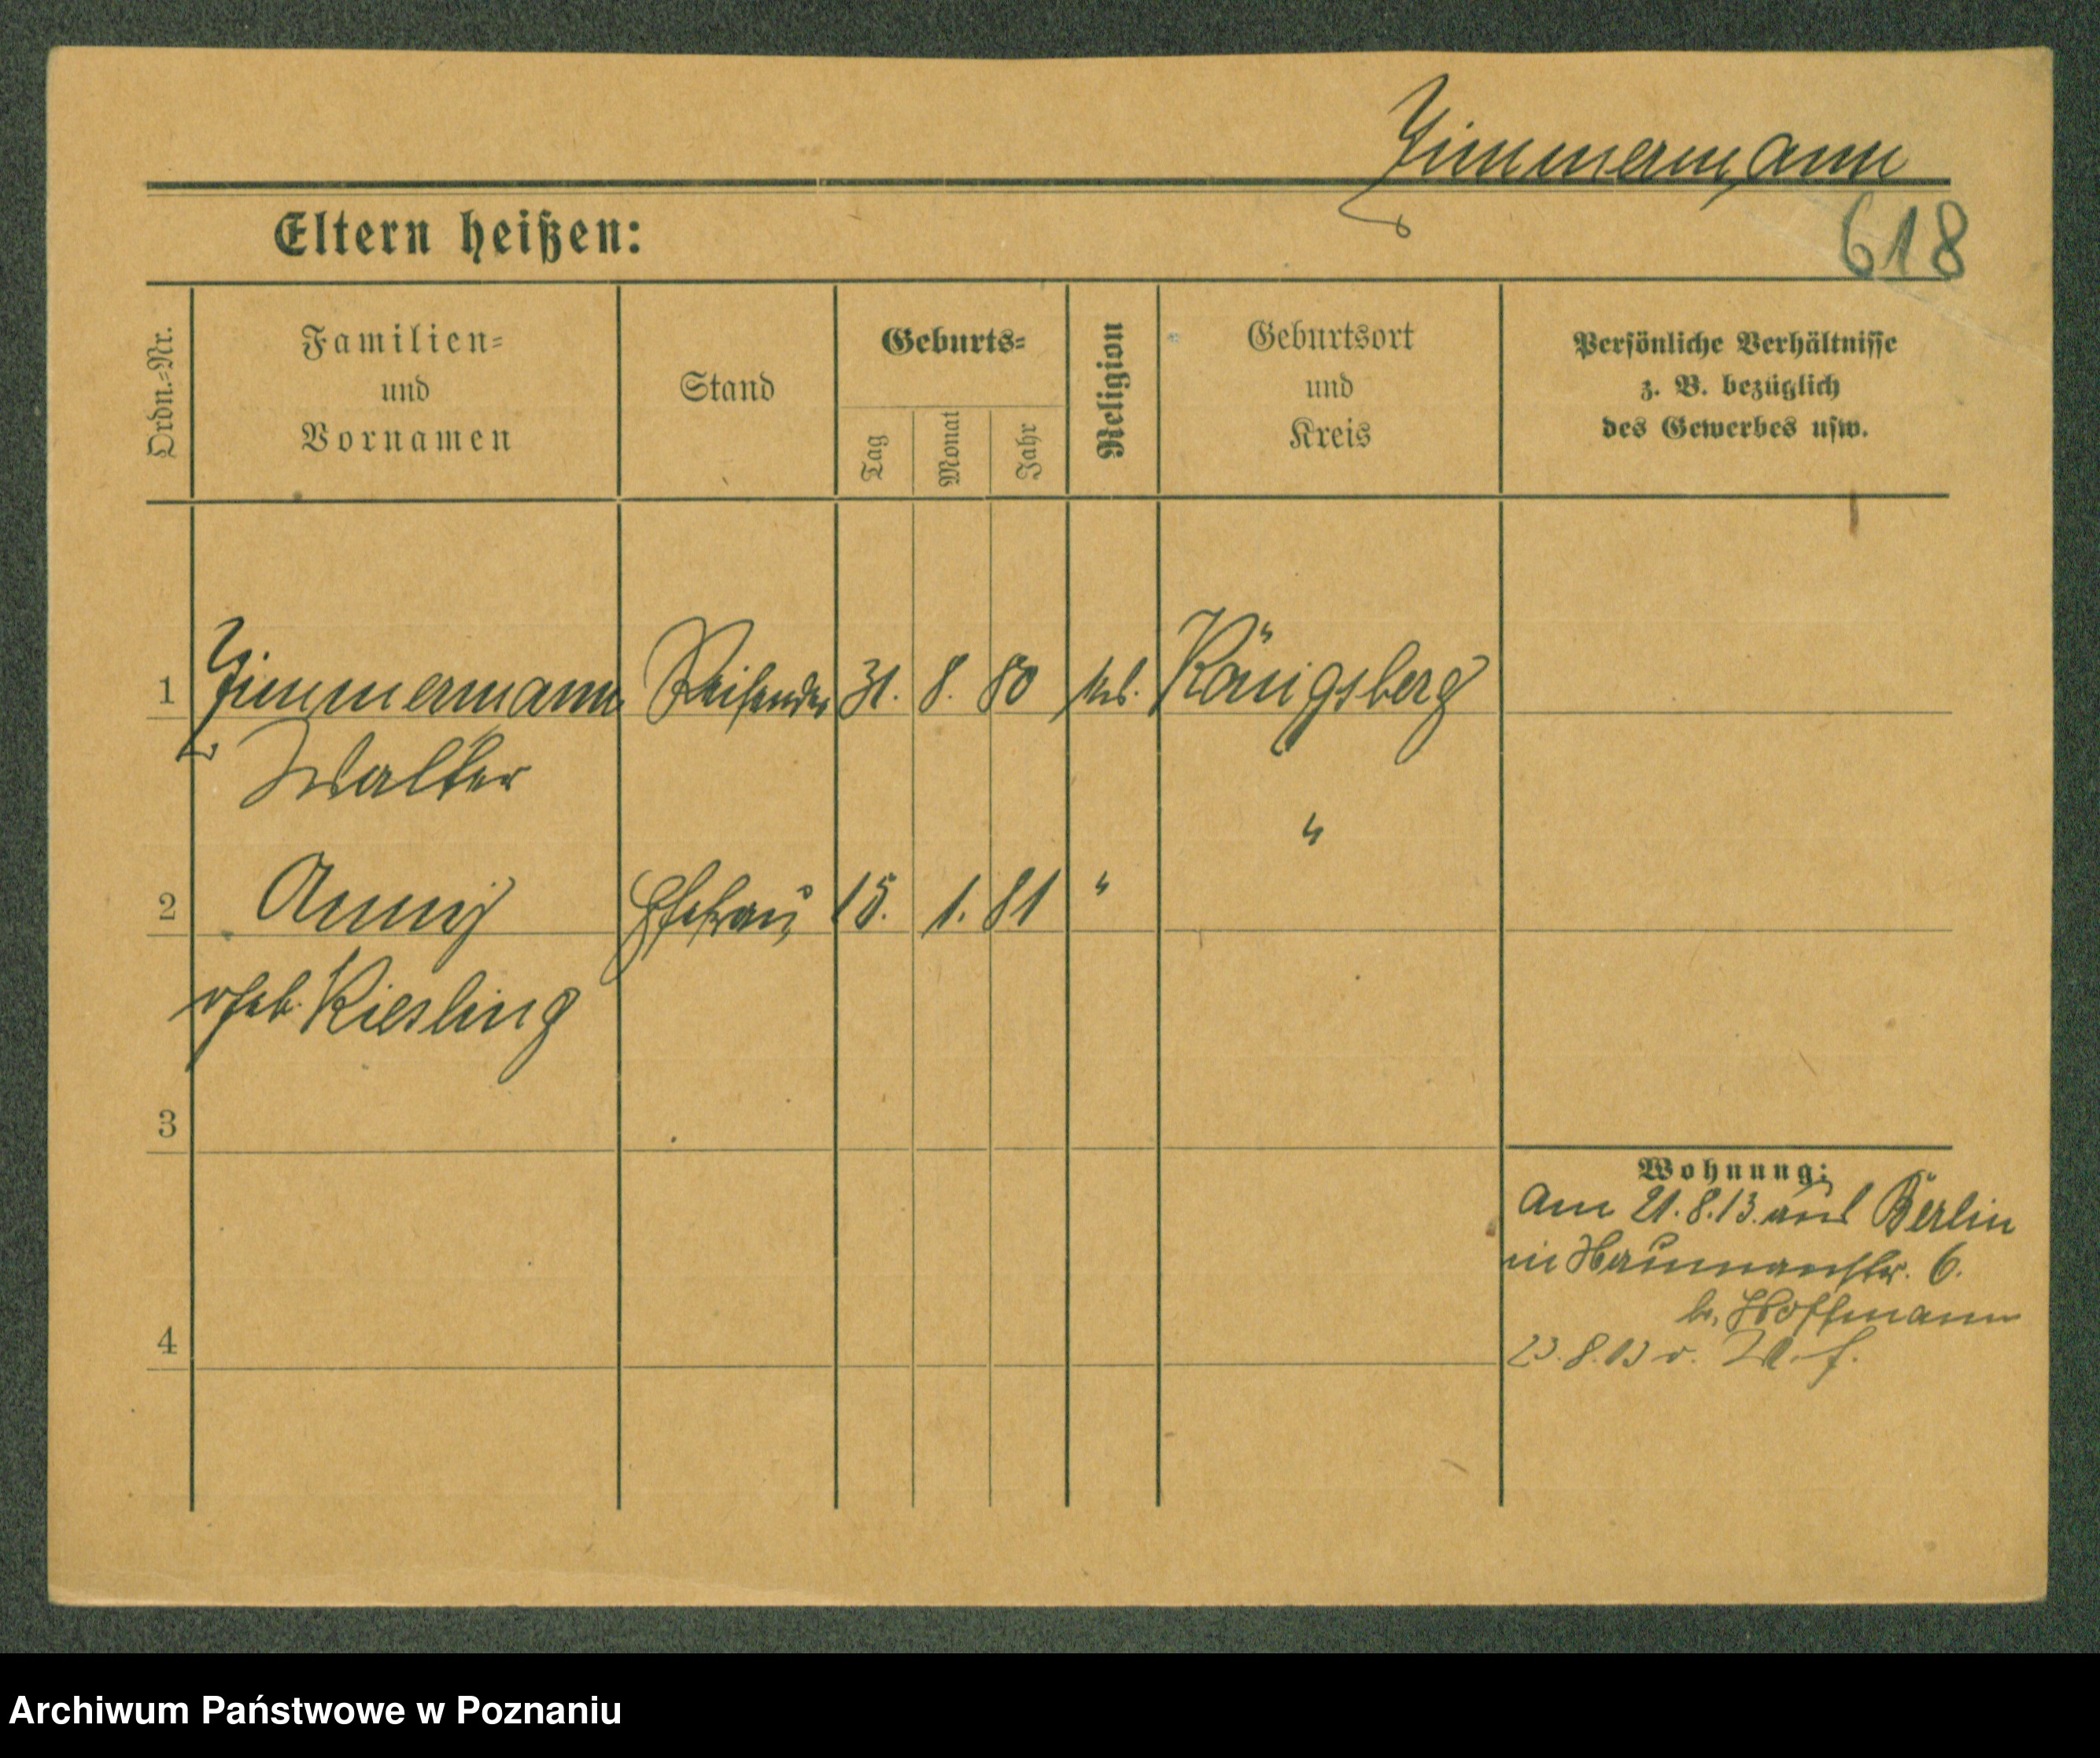 Zimmermann
618
Eltern heißen:
Ordn.=Nr.
Familien=
und
Vornamen
Stand
Geburts=
Tag
Monat
Jahr
Religion
Geburtsort
und
Kreis
Persönliche Verhältnisse
z. B. bezüglich
des Gewerbes usw.
1 Zimmermann Reisender 31. 8. 80 Königsberg
Walter
"
2 Anny Ehefrau 15. 1. 81 "
geb. Kiesling
3
Wohnung:
Am 21.8.13. aus Berlin
in Naumannstr. 6.
b. Hoffmann
4
23.8.13 v.
Archiwum Państwowe w Poznaniu